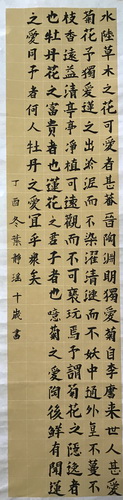 水陸草木之花可愛者甚蕃晉陶淵明獨愛菊自李唐來世人甚愛
菊花予獨愛蓮之出於泥而不染濯清漣而不妖中通外直不蔓不
枝香遠益清亭亭淨植可遠觀而不可褻玩焉予謂菊花之隱逸者
也牡丹花之富貴者也蓮花之君子者也噫菊之愛陶後鮮有聞蓮
之愛同予者何人牡丹之愛宜乎眾矣
丁酉冬葉靜瑤十歲書